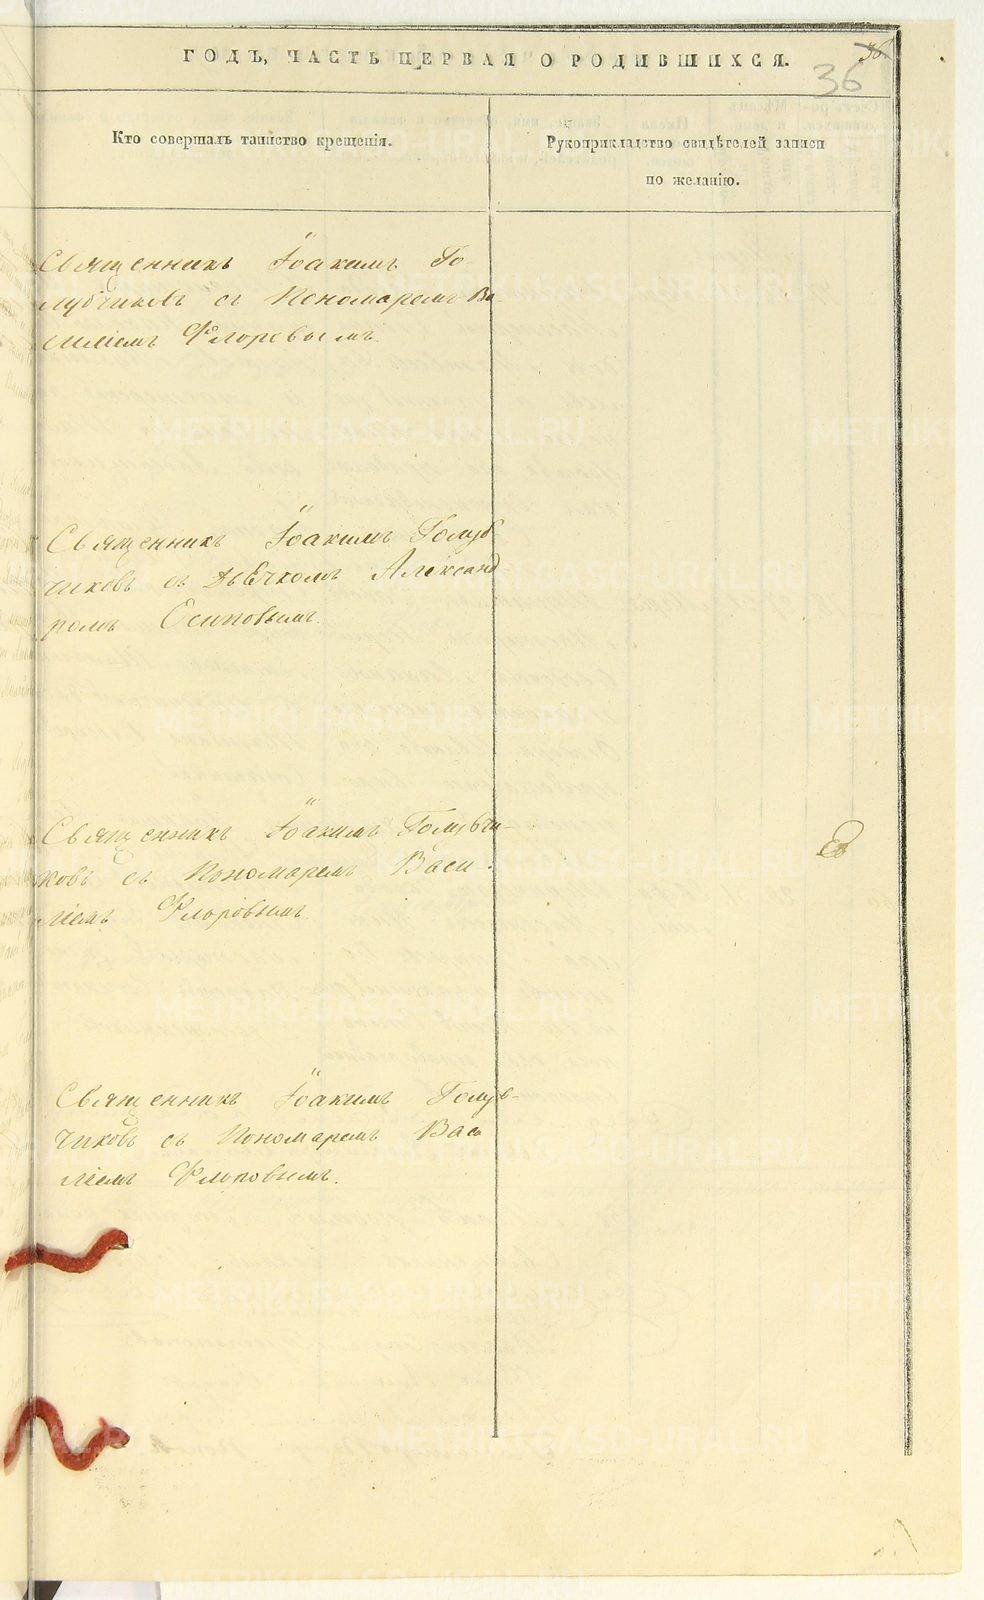 ГОДЪ, ЧАСТЬ ПЕРВАЯ О РОДИВШИХСЯ.
36
36
Кто совершалъ таинство крещенія.
Рукоприкладство свидѣтелей записи
по желанію.
Священникъ Іоакимъ Го
лубчиковъ съ Пономаремъ Ва
силіемъ Флоровымъ.
Священникъ Іоакимъ Голуб
чиковъ съ Дьячкомъ Александ-
ромъ Осиповымъ.
Священникъ Іоакимъ Голубчи-
ковъ съ Пономаремъ Васи-
ліемъ Флоровымъ
Священникъ Іоакимъ Голуб-
чиковъ съ Пономаремъ Васи
ліемъ Флоровымъ.
METRIKI.GASO-URAL.RU